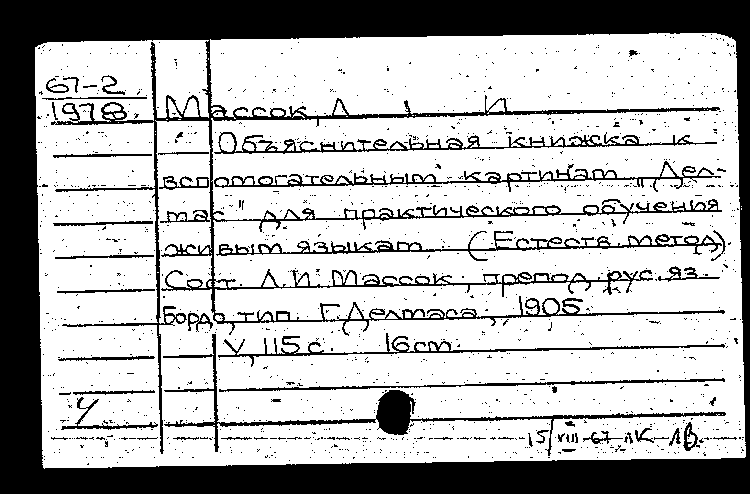 67-2
1978. Массок, Л И
Объяснительная книжка к
вспомогательным картинам „Дел-
мас" для практического обучения
живым языкам. (Естеств. метод)
Сост. Л. И. Массок, препод. рус. яз.
Бордо, тип. Г. Делмаса, 1905.
V, 115 с. 16 cm.
15/VIII-67 ЛК ЛВ.